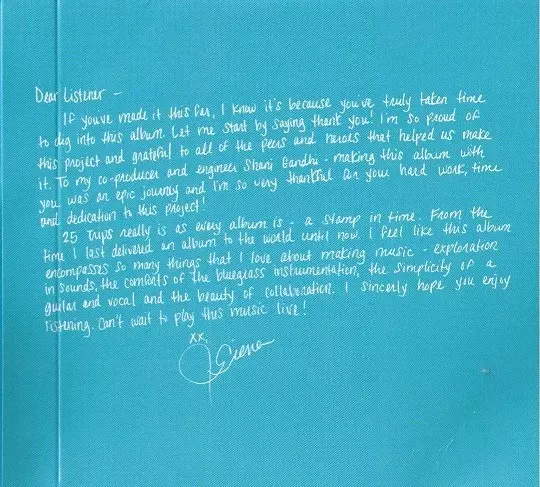 Dear Listener -
If you've made it this far, I know it's because you've truly taken time
to dig into this album. Let me start by saying thank you! I'm so proud of
this project and grateful to all of the peers and heroes that helped us make
it. To my co-producer and engineer Shani Gandhi - making this album with
you was an epic journey and I'm so very thankful for your hard work, time
and dedication to this project!
25 Trips really is as every album is - a stamp in time. From the
time I last delivered an album to the world until now. I feel like this album
encompasses so many things that I love about making music - exploration
in sounds, the comforts of the bluegrass instrumentation, the simplicity of a
guitar and vocal and the beauty of collaboration. I sincerly hope you enjoy
listening. Can't wait to play this music live!
xx,
Sierra